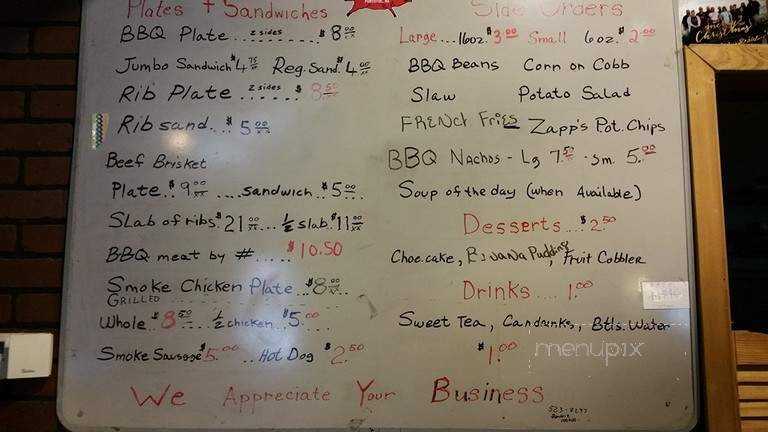 Plates + Sandwiches
BBQ Plate 2 sides ........ $8.00
Jumbo Sandwich $4.75 Reg. Sand. $4.00
Rib Plate 2 sides ..... $8.50
Rib sand... $5.00
Beef Brisket
Plate. $9.00 .... sandwich. $5.00
Slab of ribs. $21.00 ... 1/2 slab. $11.00
BBQ meat by # ..... $10.50
Smoke Chicken Plate .. $8.00
GRILLED
Whole.. $8.50 .. 1/2 chicken.. $5.00 ....
Smoke Sausage $5.00 ... Hot Dog $2.50
Side Orders
Large ... 16oz. $3.00 Small 6oz. $2.00
BBQ Beans Corn on Cobb
Slaw Potato Salad
FRENCH FRIES Zapp's Pot. Chips
BBQ Nachos - Lg 7.50 - Sm. 5.00
Soup of the day (when Available)
Desserts .... $2.50
Choc. cake, BANANA Pudding, Fruit Cobbler
Drinks .... 1.00
Sweet Tea, Can drinks, Btls. Water
$1.00
We Appreciate Your Business
menupix
Christmas